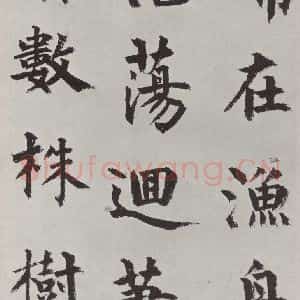 在漁
蕩迴
數株樹
Shufawang.CN